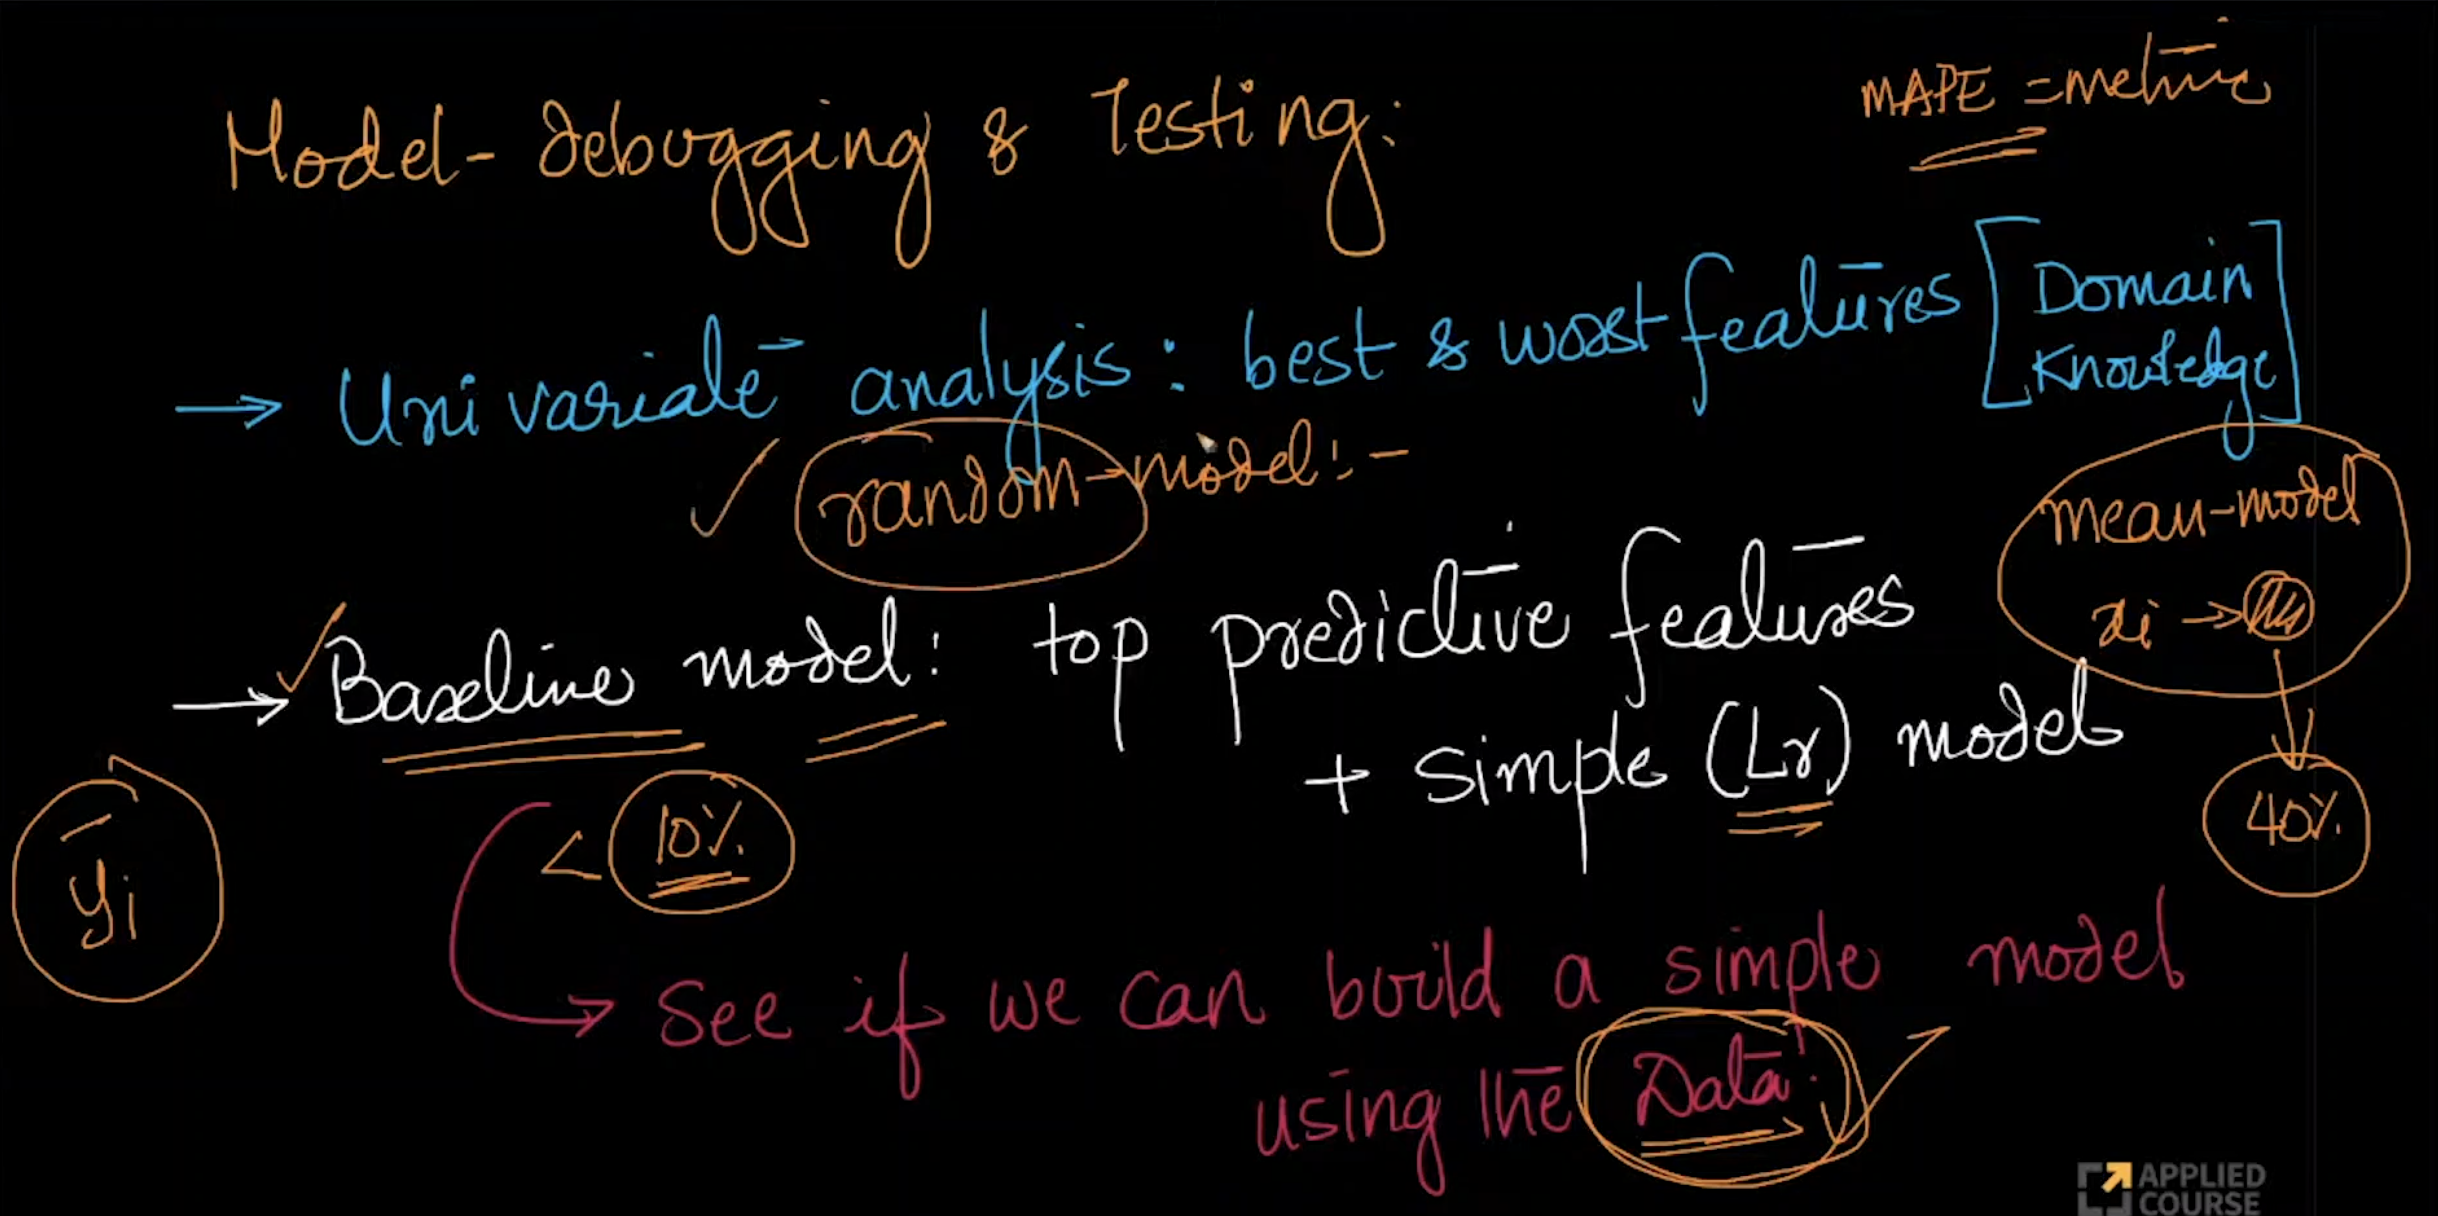 MAPE = metric
Model-debugging & Testing:
→ Univariate analysis: best & worst features [Domain Knowledge]
✓ random-model:-
mean-model
xi →
→ ✓ Baseline model: top predictive features
+ simple (Lr) model
< 10%
40%
yi
→ See if we can build a simple model
using the Data!
APPLIED
COURSE